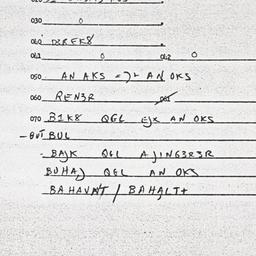 030 0
040 DEREK8
041 0 042 0
050 AN AKS => AN OKS
060 REN3R 061
070 B1K8 QGL EJK AN OKS
- BUT BUL
- BAJK QGL AJING3R3R
BUHAJ QGL AN OKS
BAHAVAT / BAHALT+